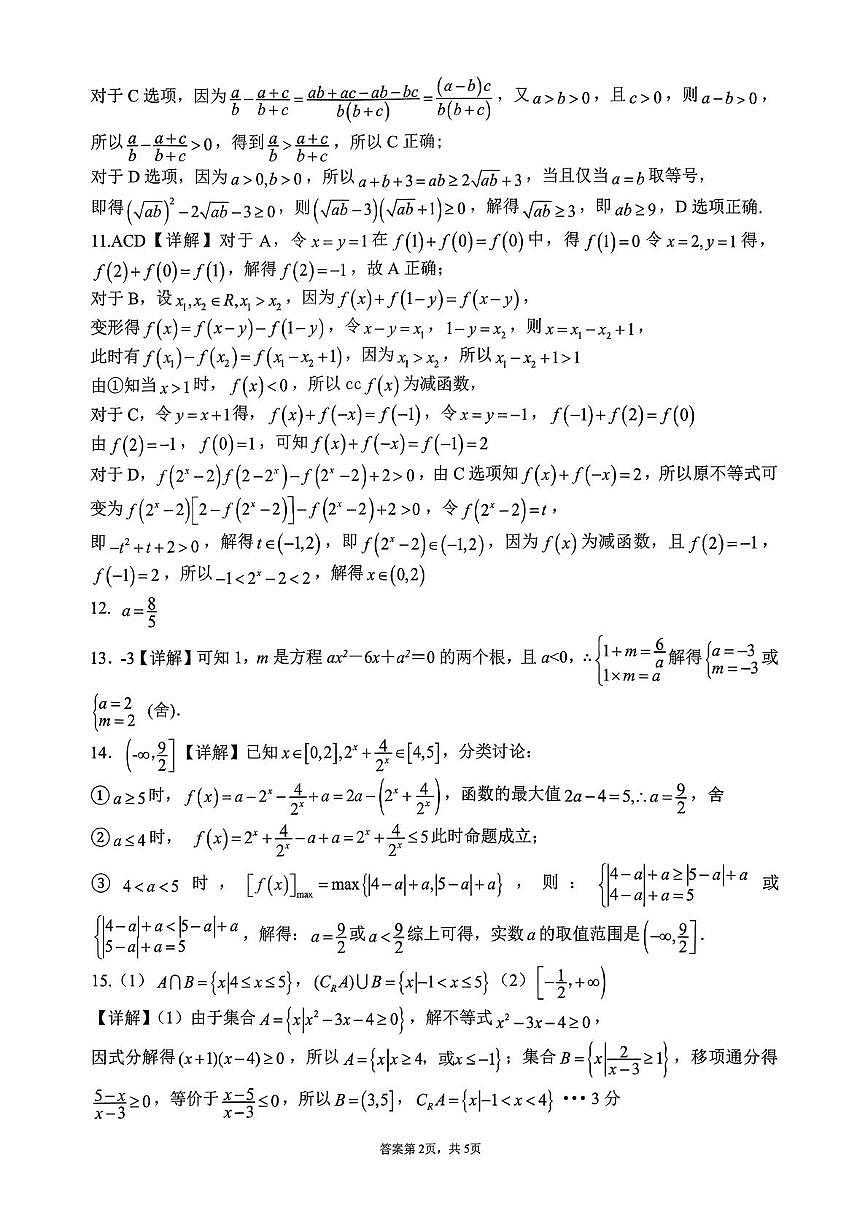 对于 C 选项，因为 $\frac{a}{b}-\frac{a+c}{b+c}=\frac{ab+ac-ab-bc}{b(b+c)}=\frac{(a-b)c}{b(b+c)}$，又 $a>b>0$，且 $c>0$，则 $a-b>0$，
所以 $\frac{a}{b}-\frac{a+c}{b+c}>0$，得到 $\frac{a}{b}>\frac{a+c}{b+c}$，所以 C 正确；
对于 D 选项，因为 $a>0,b>0$，所以 $a+b+3=ab\geq 2\sqrt{ab}+3$，当且仅当 $a=b$ 取等号，
即得 $(\sqrt{ab})^2-2\sqrt{ab}-3\geq 0$，则 $(\sqrt{ab}-3)(\sqrt{ab}+1)\geq 0$，解得 $\sqrt{ab}\geq 3$，即 $ab\geq 9$，D 选项正确.
11.ACD【详解】对于 A，令 $x=y=1$ 在 $f(1)+f(0)=f(0)$ 中，得 $f(1)=0$ 令 $x=2,y=1$ 得，
$f(2)+f(0)=f(1)$，解得 $f(2)=-1$，故 A 正确；
对于 B，设 $x_1,x_2\in R,x_1>x_2$，因为 $f(x)+f(1-y)=f(x-y)$，
变形得 $f(x)=f(x-y)-f(1-y)$，令 $x-y=x_1$，$1-y=x_2$，则 $x=x_1-x_2+1$，
此时有 $f(x_1)-f(x_2)=f(x_1-x_2+1)$，因为 $x_1>x_2$，所以 $x_1-x_2+1>1$
由①知当 $x>1$ 时， $f(x)<0$，所以 cc $f(x)$ 为减函数，
对于 C，令 $y=x+1$ 得， $f(x)+f(-x)=f(-1)$，令 $x=y=-1$， $f(-1)+f(2)=f(0)$
由 $f(2)=-1$， $f(0)=1$，可知 $f(x)+f(-x)=f(-1)=2$
对于 D，$f(2^x-2)f(2-2^x)-f(2^x-2)+2>0$，由 C 选项知 $f(x)+f(-x)=2$，所以原不等式可
变为 $f(2^x-2)[2-f(2^x-2)]-f(2^x-2)+2>0$，令 $f(2^x-2)=t$，
即 $-t^2+t+2>0$，解得 $t\in(-1,2)$，即 $f(2^x-2)\in(-1,2)$，因为 $f(x)$ 为减函数，且 $f(2)=-1$，
$f(-1)=2$，所以 $-1<2^x-2<2$，解得 $x\in(0,2)$
12. $a=\frac{8}{5}$
13．-3【详解】可知 1，m 是方程 $ax^2-6x+a^2=0$ 的两个根，且 $a<0$，∴ $\begin{cases}1+m=\frac{6}{a}\\1\times m=a\end{cases}$ 解得 $\begin{cases}a=-3\\m=-3\end{cases}$ 或
$\begin{cases}a=2\\m=2\end{cases}$ (舍).
14．$\left(-\infty,\frac{9}{2}\right]$【详解】已知 $x\in[0,2],2^x+\frac{4}{2^x}\in[4,5]$，分类讨论：
① $a\geq 5$ 时，$f(x)=a-2^x-\frac{4}{2^x}+a=2a-\left(2^x+\frac{4}{2^x}\right)$，函数的最大值 $2a-4=5,\therefore a=\frac{9}{2}$，舍
② $a\leq 4$ 时， $f(x)=2^x+\frac{4}{2^x}-a+a=2^x+\frac{4}{2^x}\leq 5$ 此时命题成立；
③ $4<a<5$ 时，$[f(x)]_{max}=\max\{|4-a|+a,|5-a|+a\}$，则：$\begin{cases}|4-a|+a\geq|5-a|+a\\|4-a|+a=5\end{cases}$ 或
$\begin{cases}|4-a|+a<|5-a|+a\\|5-a|+a=5\end{cases}$，解得：$a=\frac{9}{2}$ 或 $a<\frac{9}{2}$ 综上可得，实数 $a$ 的取值范围是 $\left(-\infty,\frac{9}{2}\right]$.
15.（1） $A\cap B=\{x|4\leq x\leq 5\}$，$(C_RA)\cup B=\{x|-1<x\leq 5\}$（2）$\left[-\frac{1}{2},+\infty\right)$
【详解】（1）由于集合 $A=\{x|x^2-3x-4\geq 0\}$，解不等式 $x^2-3x-4\geq 0$，
因式分解得 $(x+1)(x-4)\geq 0$，所以 $A=\{x|x\geq 4，或x\leq -1\}$；集合 $B=\left\{x\middle|\frac{2}{x-3}\geq 1\right\}$，移项通分得
$\frac{5-x}{x-3}\geq 0$，等价于 $\frac{x-5}{x-3}\leq 0$，所以 $B=(3,5]$，$C_RA=\{x|-1<x<4\}$ ···3 分
答案第 2页，共 5页